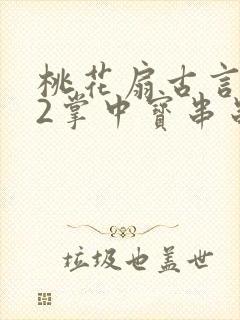 桃花扇古言
2掌中寶串
垃圾也盖世